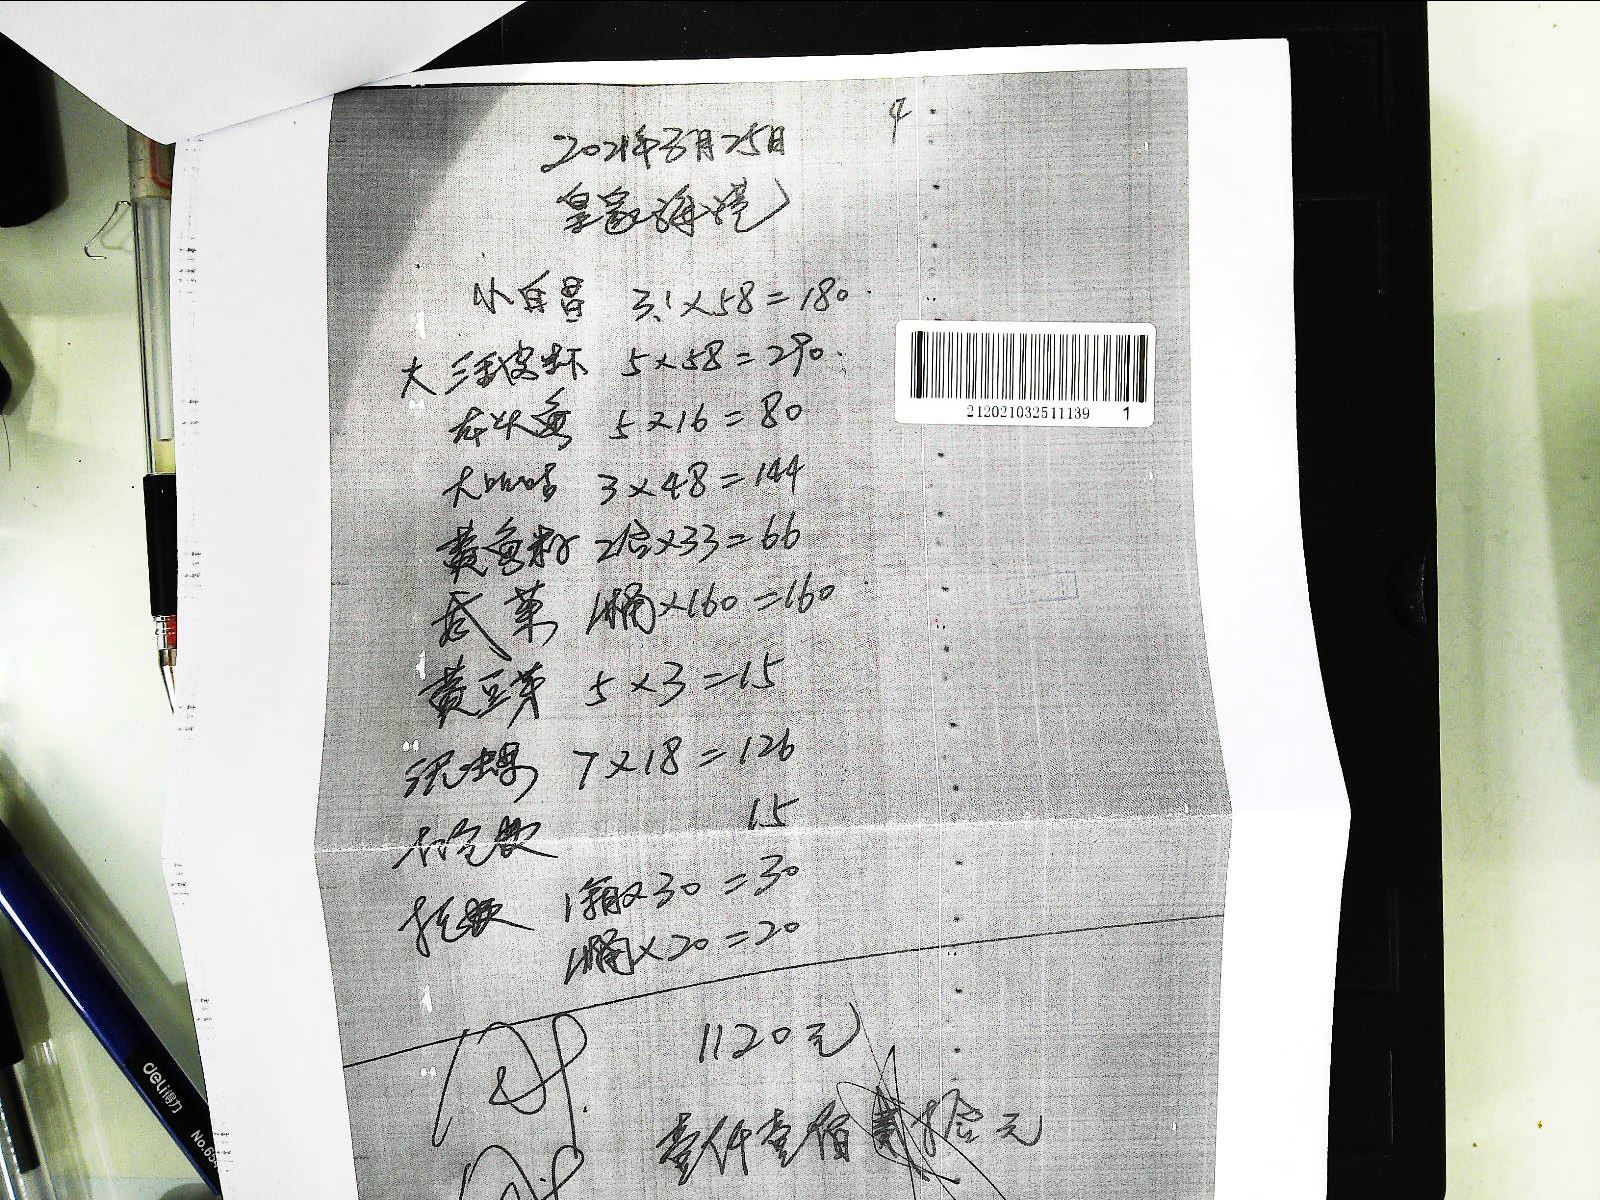 4
2021年3月25日
皇家海湾
小白昌 3.1×58=180
大 5×58=290
5×16=80
大 3×48=144
黄鱼籽 2合×33=66
咸菜 1桶×160=160
黄豆芽 5×3=15
泥螺 7×18=126
15
1箱×30=30
1桶×20=20
1120元
壹仟壹佰贰拾元
212021032511139 1
deli得力